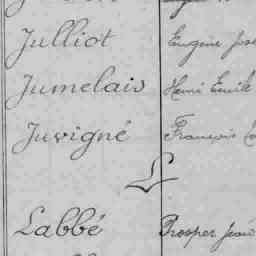 Julliot Eugène
Jumelais Henri Emile
Juvigné François
L
Labbé Prosper Jean